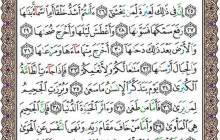 إِنَّ فِي ذَٰلِكَ لَعِبْرَةً لِّمَن يَخْشَىٰ ٢٦ ءَأَنتُمْ أَشَدُّ خَلْقًا أَمِ ٱلسَّمَآءُ بَنَىٰهَا ٢٧
رَفَعَ سَمْكَهَا فَسَوَّىٰهَا ٢٨ وَأَغْطَشَ لَيْلَهَا وَأَخْرَجَ ضُحَىٰهَا ٢٩
وَٱلْأَرْضَ بَعْدَ ذَٰلِكَ دَحَىٰهَآ ٣٠ أَخْرَجَ مِنْهَا مَآءَهَا وَمَرْعَىٰهَا ٣١
وَٱلْجِبَالَ أَرْسَىٰهَا ٣٢ مَتَٰعًا لَّكُمْ وَلِأَنْعَٰمِكُمْ ٣٣ فَإِذَا جَآءَتِ ٱلطَّآمَّةُ
ٱلْكُبْرَىٰ ٣٤ يَوْمَ يَتَذَكَّرُ ٱلْإِنسَٰنُ مَا سَعَىٰ ٣٥ وَبُرِّزَتِ ٱلْجَحِيمُ
لِمَن يَرَىٰ ٣٦ فَأَمَّا مَن طَغَىٰ ٣٧ وَءَاثَرَ ٱلْحَيَوٰةَ ٱلدُّنْيَا ٣٨ فَإِنَّ ٱلْجَحِيمَ
هِيَ ٱلْمَأْوَىٰ ٣٩ وَأَمَّا مَنْ خَافَ مَقَامَ رَبِّهِۦ وَنَهَى ٱلنَّفْسَ عَنِ ٱلْهَوَىٰ